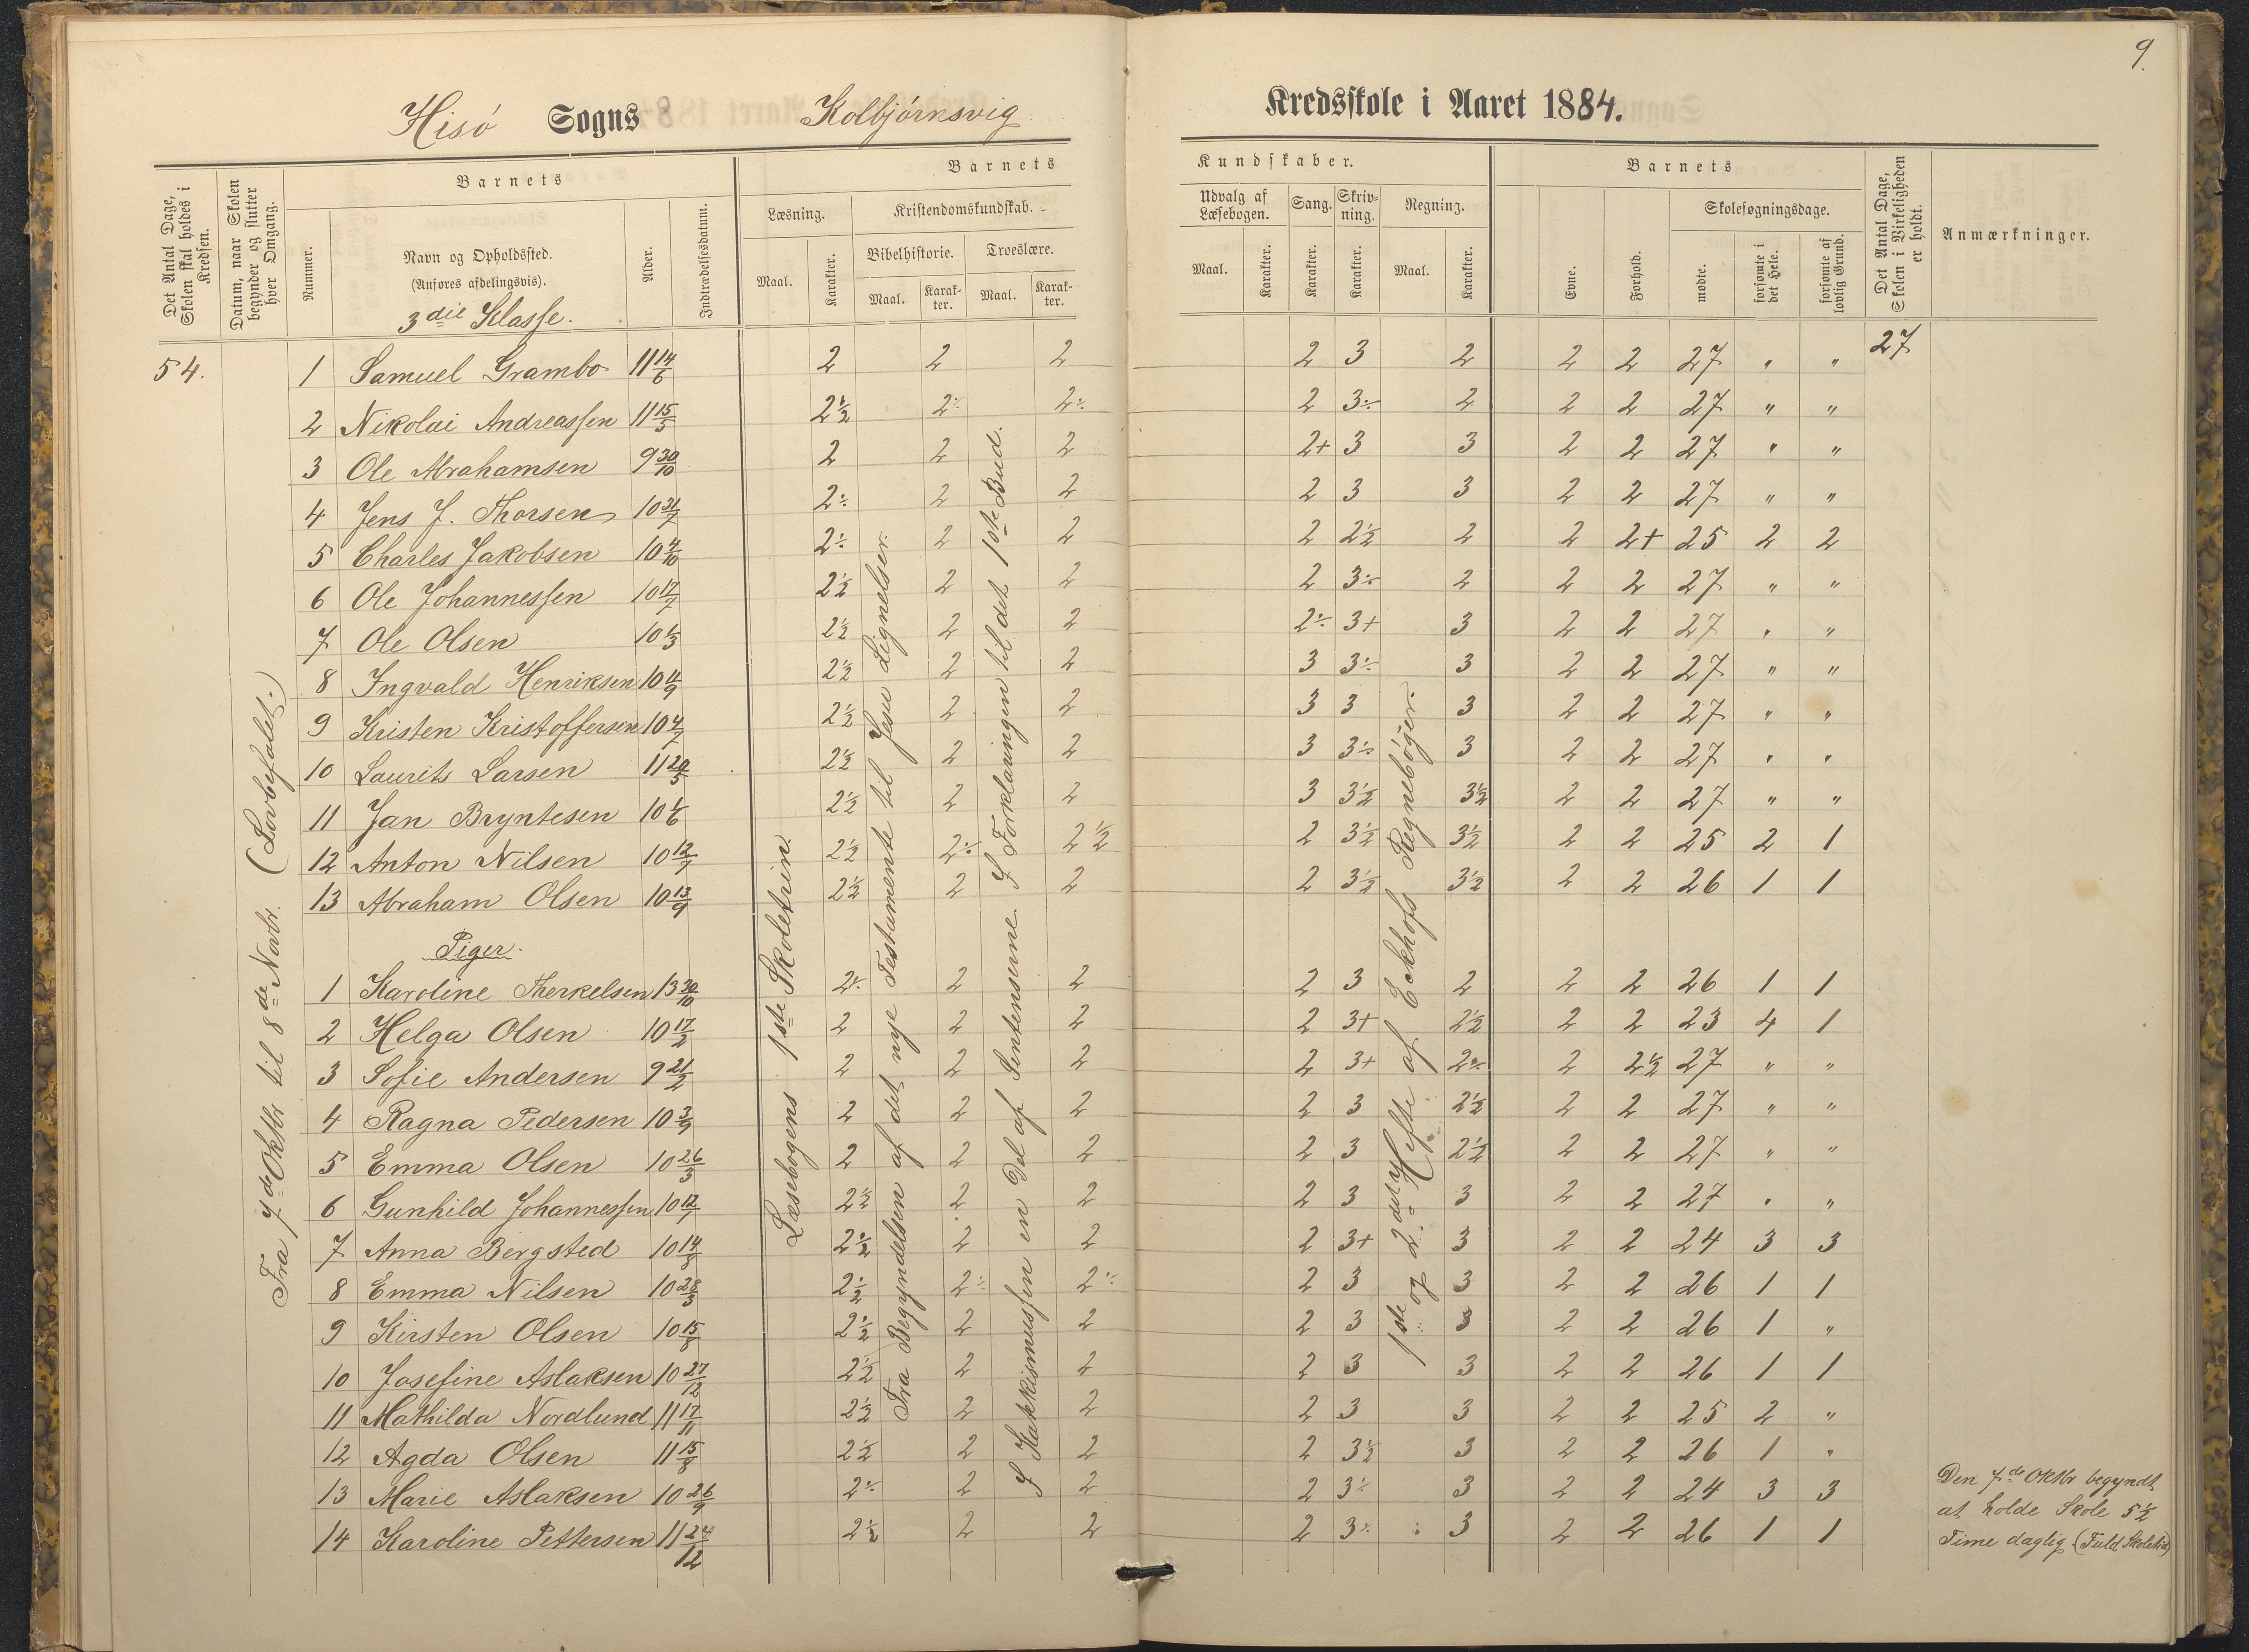 9.
Hisø Sogns Kolbjørnsvig Kredsskole i Aaret 1884.
Det Antal Dage, Skolen skal holdes i Kredsen.
Datum, naar Skolen begynder og slutter hver Omgang.
Barnets
Nummer.
Navn og Opholdssted.
(Anføres afdelingsvis).
3die Klasse.
Alder.
Indtrædelsesdatum.
Barnets Kundskaber.
Læsning.
Maal. Karakter.
Kristendomskundskab.
Bibelhistorie. Troeslære.
Maal. Karakter. Maal. Karakter.
Udvalg af Læsebogen.
Maal. Karakter.
Sang. Karakter.
Skrivning. Karakter.
Regning.
Maal. Karakter.
Barnets
Evne. Forhold.
Skolesøgningsdage.
mødte. forsømte i det Hele. forsømte af lovlig Grund.
Det Antal Dage, Skolen i Virkeligheden er holdt.
Anmærkninger.
54. 1 Samuel Grambo 11 14/6 2 2 2 2 3 2 2 2 27 " " 27
2 Nikolai Andreassen 11 15/5 2 1/2 2÷ 2÷ 2 3÷ 2 2 2 27 " "
3 Ole Abrahamsen 9 30/10 2 2 2 2+ 3 3 2 2 27 " "
4 Jens J. Thorsen 10 31/7 2÷ 2 2 2 3 3 2 2 27 " "
5 Charles Jakobsen 10 4/10 2÷ 2 2 2 2 1/2 2 2 2+ 25 2 2
6 Ole Johannessen 10 17/7 2 1/2 2 2 2 3÷ 2 2 2 27 " "
7 Ole Olsen 10 1/3 2 1/2 2 2 2÷ 3+ 3 2 2 27 " "
8 Ingvald Henriksen 10 11/9 2 1/2 2 2 3 3÷ 3 2 2 27 " "
9 Kristen Kristoffersen 10 4/7 2 1/2 2 2 3 3 3 2 2 27 " "
10 Laurits Larsen 11 20/5 2 1/2 2 2 3 3÷ 3 2 2 27 " "
11 Jan Bryntesen 10 1/6 2 1/2 2 2 3 3 1/2 3 1/2 2 2 27 " "
12 Anton Nilsen 10 12/7 2 1/2 2÷ 2 1/2 2 3 1/2 3 1/2 2 2 25 2 1
13 Abraham Olsen 10 13/9 2 1/2 2 2 2 3 1/2 3 1/2 2 2 26 1 1
Piger.
1 Karoline Therkelsen 13 30/10 2÷ 2 2 2 3 2 2 2 26 1 1
2 Helga Olsen 10 17/2 2 2 2 2 3+ 2 1/2 2 2 23 4 1
3 Sofie Andersen 9 21/2 2 2 2 2 3+ 2÷ 2 2 1/2 27 " "
4 Ragna Pedersen 10 3/9 2 2 2 2 3 2 1/2 2 2 27 " "
5 Emma Olsen 10 26/3 2 2 2 2 3 2 1/2 2 2 27 " "
6 Gunhild Johannessen 10 12/7 2 1/2 2 2 2 3 3 2 2 27 " "
7 Anna Bergsted 10 14/8 2 1/2 2 2 2 3+ 3 2 2 24 3 3
8 Emma Nilsen 10 28/3 2 1/2 2÷ 2÷ 2 3 3 2 2 26 1 1
9 Kirsten Olsen 10 15/8 2 1/2 2 2 2 3 3 2 2 26 1 "
10 Josefine Aslaksen 10 27/12 2 1/2 2 2 2 3 3 2 2 26 1 1
11 Mathilda Nordlund 11 17/11 2 1/2 2 2 2 3 3 2 2 25 2 "
12 Agda Olsen 11 15/8 2 1/2 2 2 2 3 1/2 3 2 2 26 1 "
13 Marie Aslaksen 10 26/9 2÷ 2 2 2 3÷ 3 2 2 24 3 3
14 Karoline Pettersen 11 24/12 2 1/2 2 2 2 3÷ 3 2 2 26 1 1
Fra 7de Oktbr til 8de Novbr. (Lovbefalet.)
Læsebogens 1ste Skoletrin.
Fra Begyndelsen af det nye Testamente til Jesu Lignelser.
I Katekismussen en Del af Sentenserne. I Forklaringen til det 1ste Bud.
1ste og 2det Hefte af Eckhofs Regnebøger.
Den 7de Oktbr begyndt
at holde Skole 5 1/2
Time daglig (Fuld Skoletid)